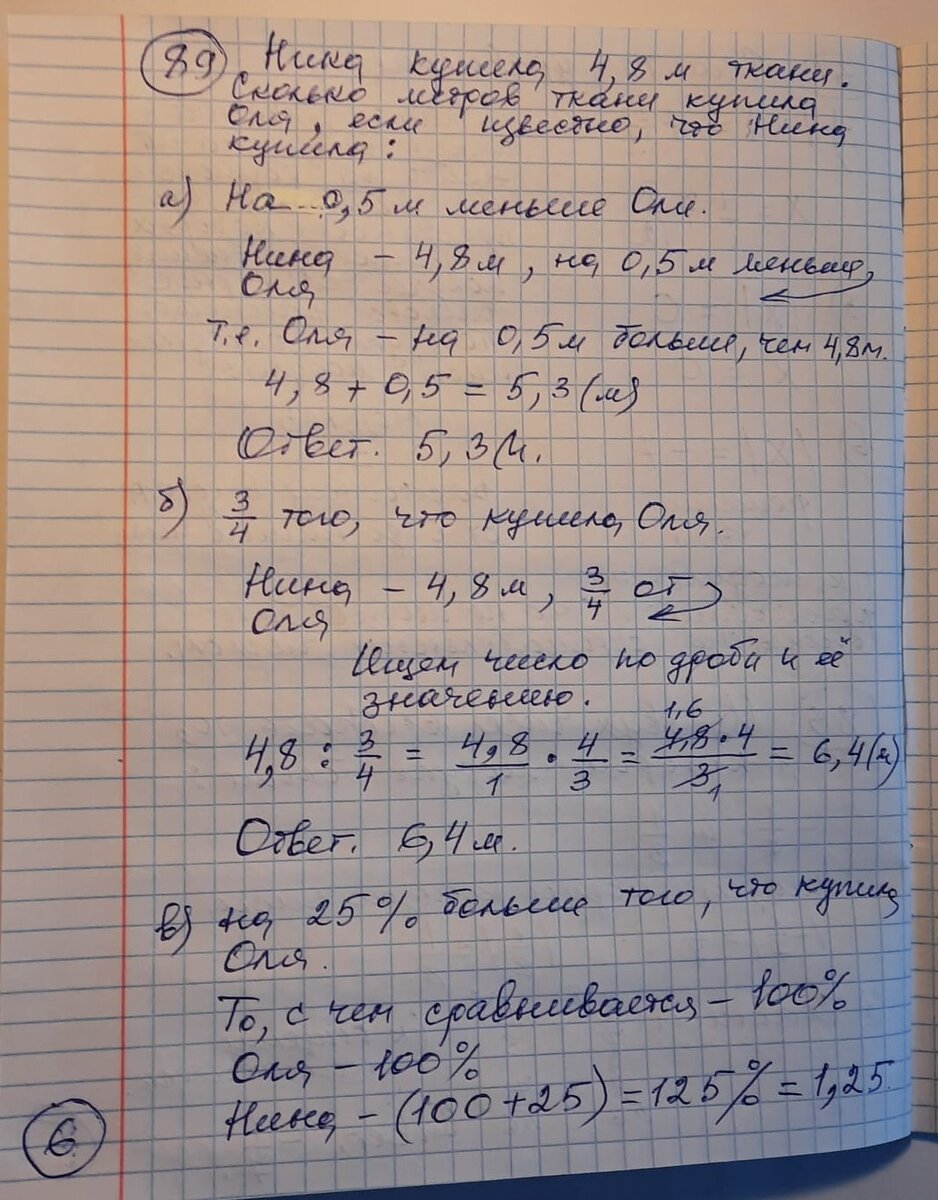 89 Нина купила 4,8 м ткани.
Сколько метров ткани купила
Оля, если известно, что Нина
купила:
а) На 0,5 м меньше Оли.
Нина – 4,8 м, на 0,5 м меньше,
Оля
Т.е. Оля – на 0,5 м больше, чем 4,8 м.
4,8 + 0,5 = 5,3 (м)
Ответ. 5,3 м.
б) 3/4 того, что купила Оля.
Нина – 4,8 м, 3/4 от
Оля
Ищем число по дроби и её
значению.
4,8 : 3/4 = 4,8/1 · 4/3 = 4,8 1,6 · 4/3 1 = 6,4 (м)
Ответ. 6,4 м.
в) на 25% больше того, что купила
Оля.
То, с чем сравнивается – 100%
Оля – 100%
Нина – (100 + 25) = 125% = 1,25
6